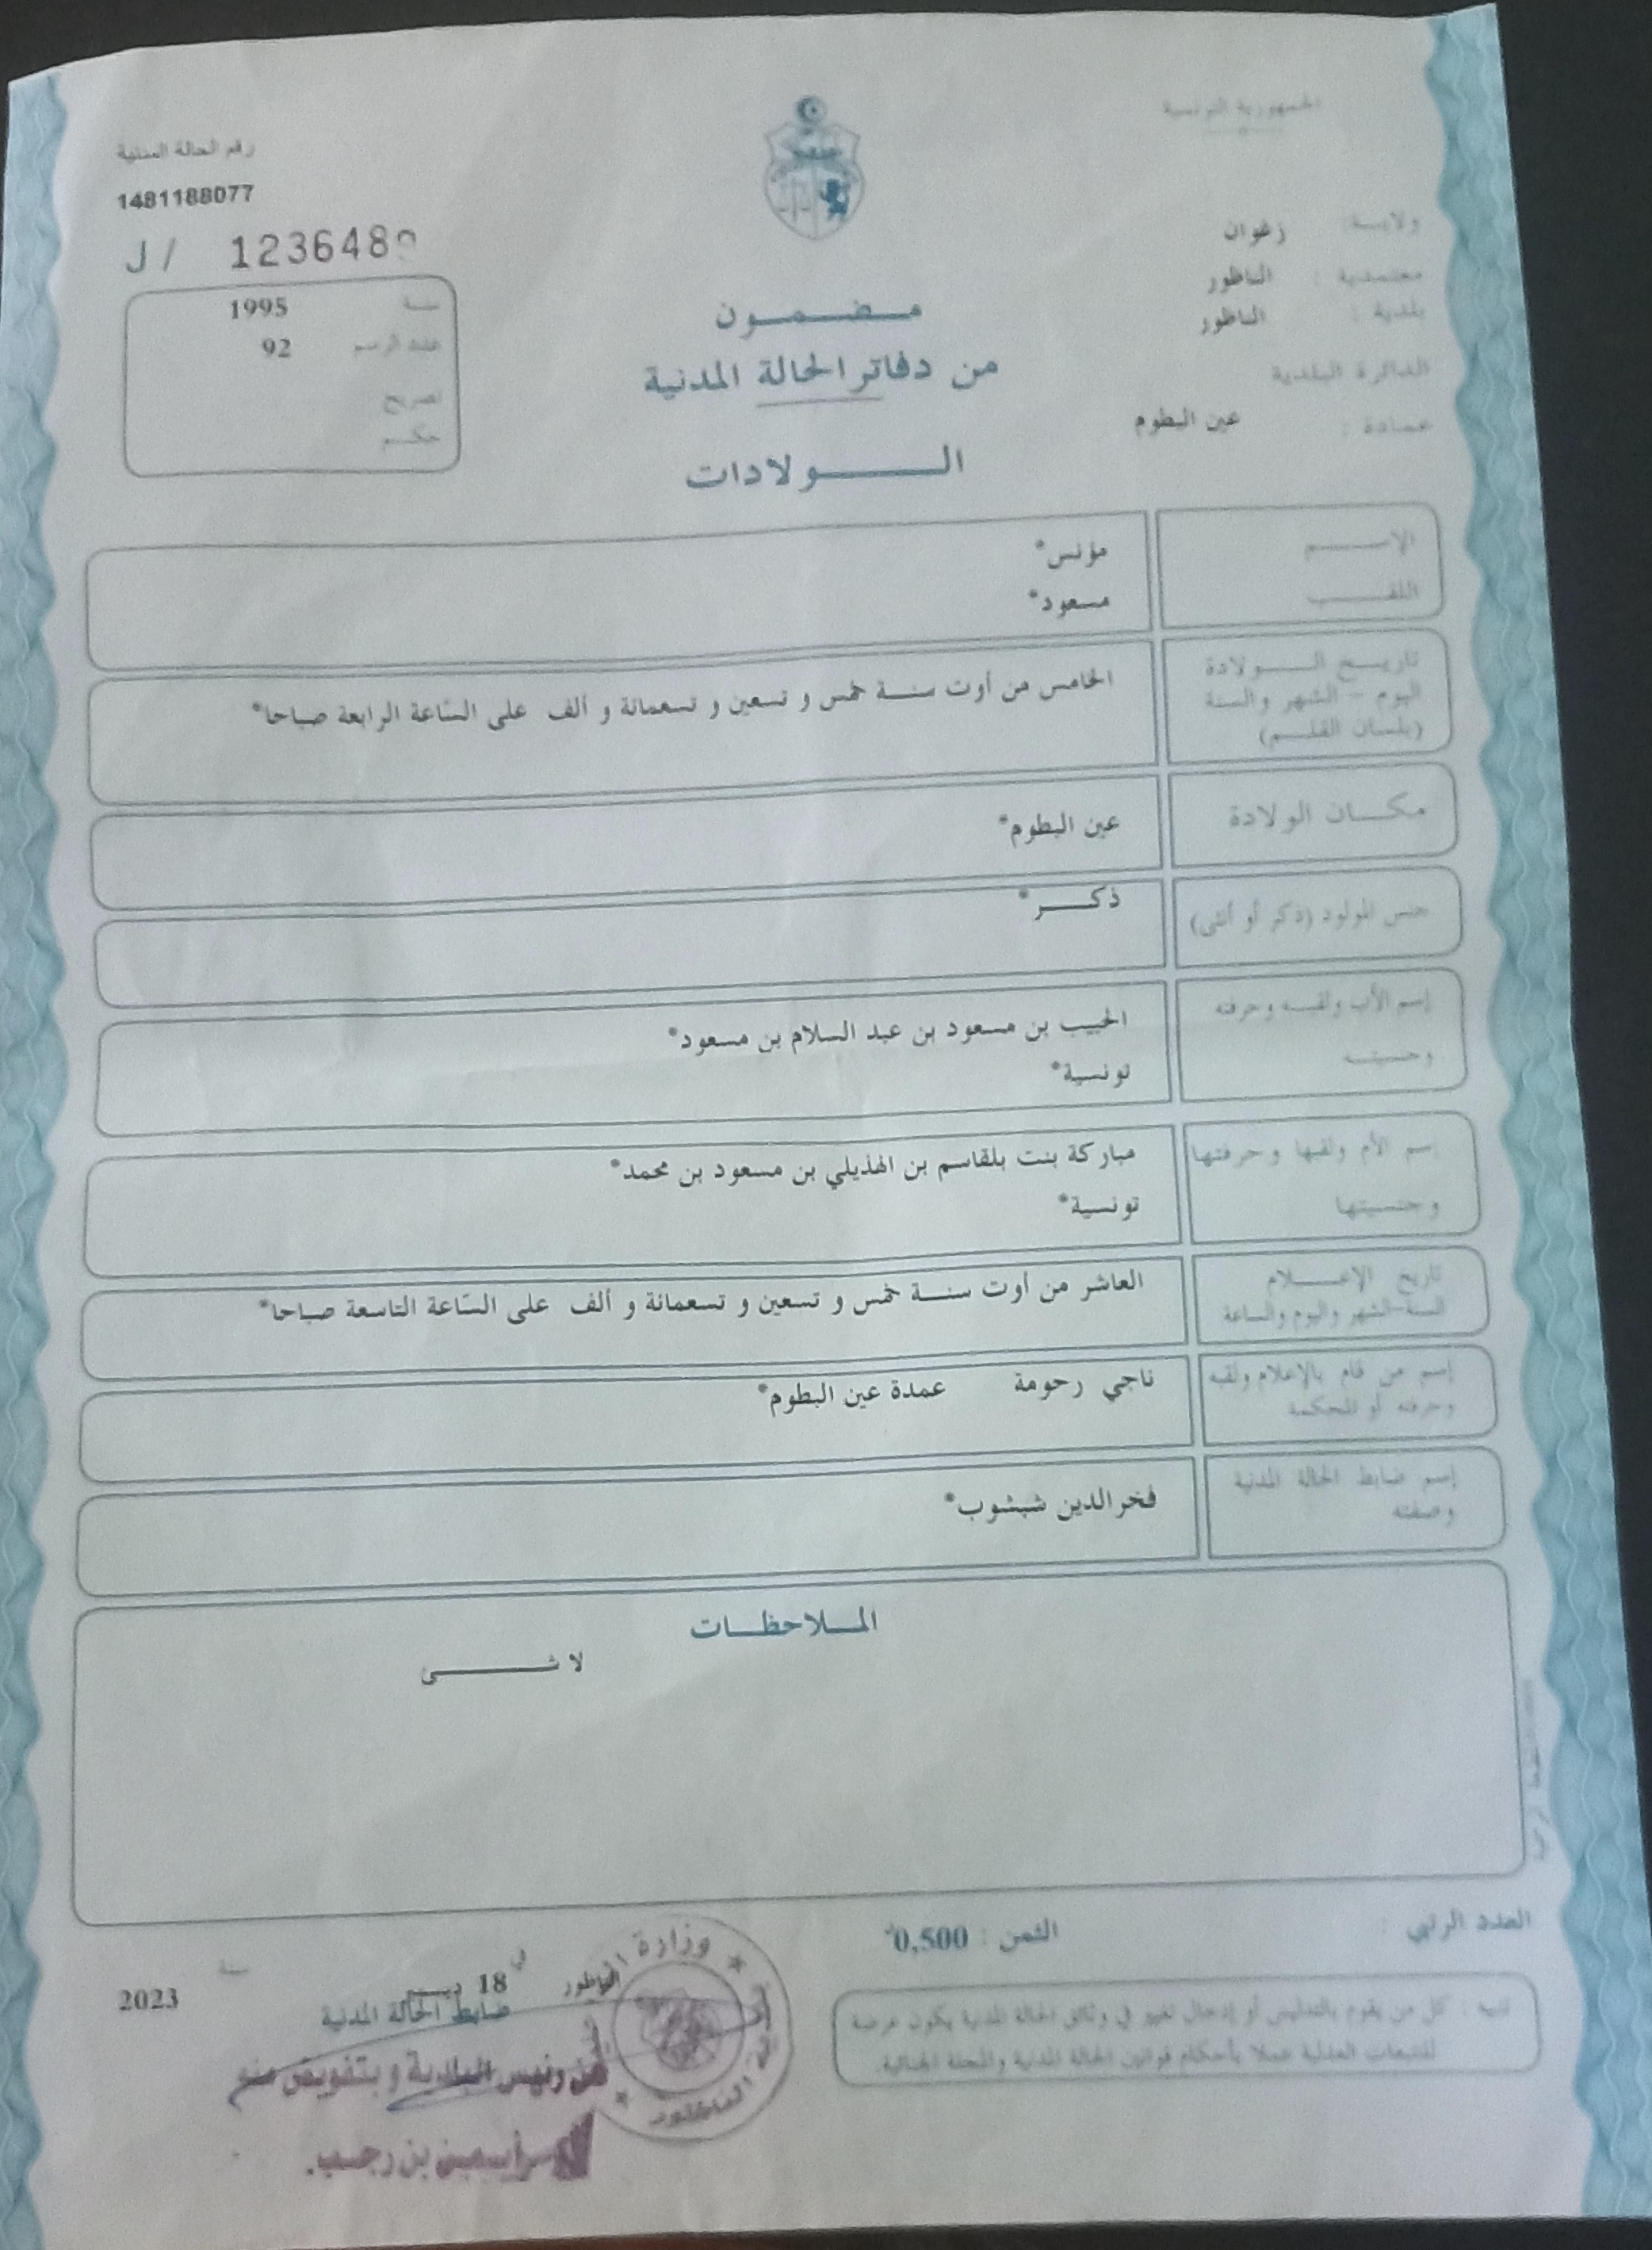 الجمهورية التونسية
رقم الحالة المدنية
1481188077
J / 1236489
ولاية : زغوان
معتمدية : الناظور
بلدية : الناظور
الدائرة البلدية
عمادة : عين البطوم
سنة 1995
عدد الرسم 92
تصريح
حكم
مضمون
من دفاتر الحالة المدنية
الولادات
الاسم مؤنس*
اللقب مسعود*
تاريخ الولادة
اليوم - الشهر والسنة
(بلسان القلم)
الخامس من أوت سنة خمس و تسعين و تسعمائة و ألف على الساعة الرابعة صباحا*
مكان الولادة عين البطوم*
جنس المولود (ذكر أو أنثى) ذكر*
إسم الأب ولقبه وحرفته الحبيب بن مسعود بن عبد السلام بن مسعود*
وجنسيته تونسية*
إسم الأم ولقبها وحرفتها مباركة بنت بلقاسم بن الهذيلي بن مسعود بن محمد*
وجنسيتها تونسية*
تاريخ الإعلام
السنة-الشهر واليوم والساعة
العاشر من أوت سنة خمس و تسعين و تسعمائة و ألف على الساعة التاسعة صباحا*
إسم من قام بالإعلام ولقبه
وحرفته أو المحكمة
ناجي رحومة عمدة عين البطوم*
إسم ضابط الحالة المدنية
وصفته
فخرالدين شبشوب*
الملاحظات
لا شى
العدد الرتبي :
الثمن : 0,500
تنبيه : كل من يقوم بالتدليس أو إدخال تغيير في وثائق الحالة المدنية يكون عرضة
للتتبعات العدلية عملا بأحكام قوانين الحالة المدنية والمجلة الجنائية.
الناظور في 18 سنة 2023
ضابط الحالة المدنية
عن رئيس البلدية و بتفويض منه
بن رجب.
وزارة
الناظور